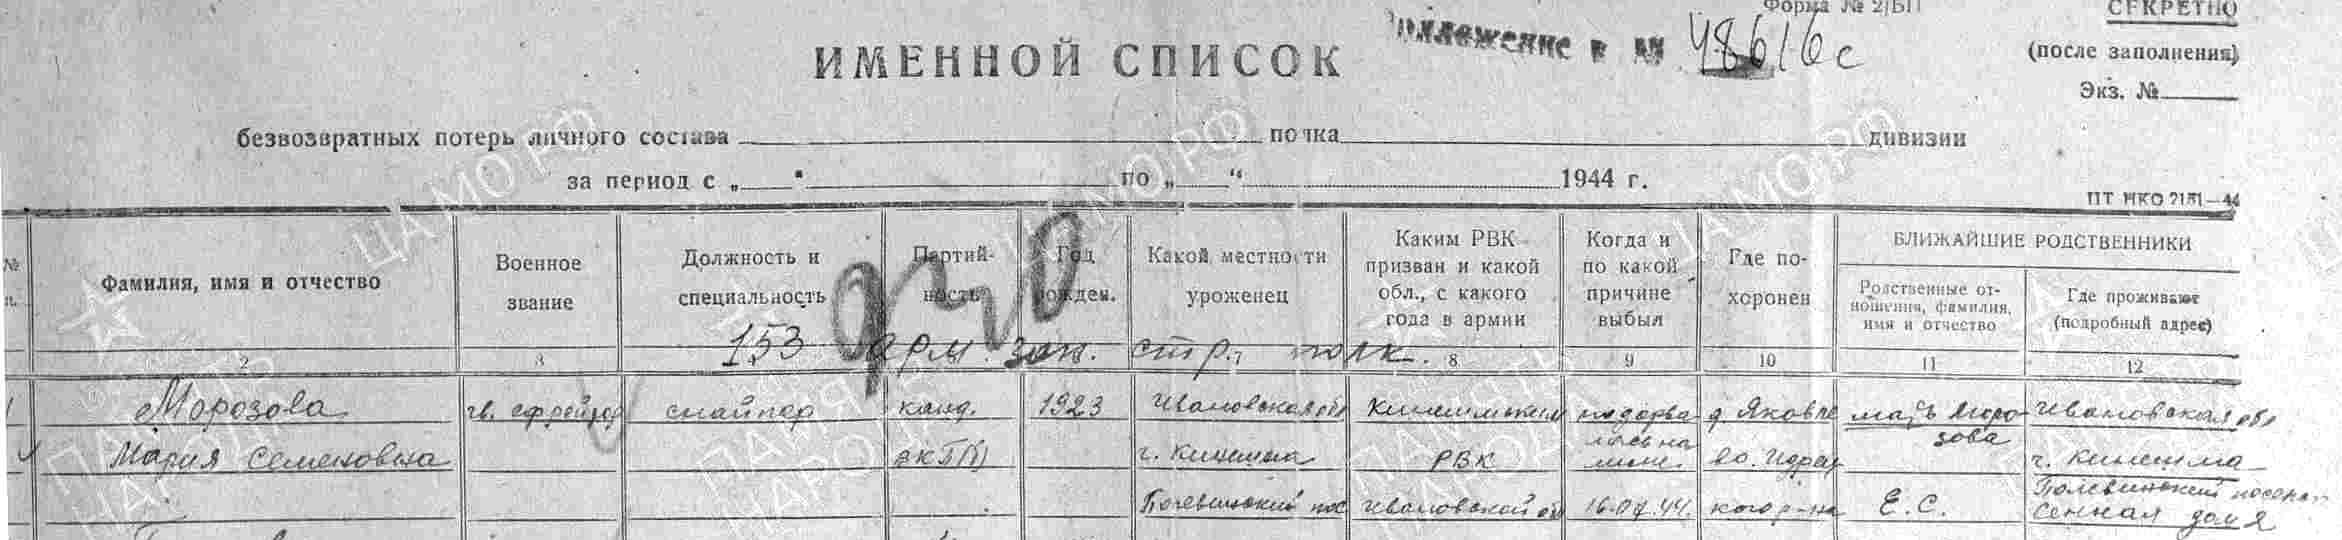 Форма № 2/БП
СЕКРЕТНО
(после заполнения)
Экз. №
Приложение к № 48616с
ИМЕННОЙ СПИСОК
безвозвратных потерь личного состава полка дивизии
за период с „ " по „ " 1944 г.
ПТ НКО 2151—44
№ п.
Фамилия, имя и отчество
Военное звание
Должность и специальность
Партий-ность
Год рожден.
Какой местности уроженец
Каким РВК призван и какой обл., с какого года в армии
Когда и по какой причине выбыл
Где по-хоронен
БЛИЖАЙШИЕ РОДСТВЕННИКИ
Родственные от-ношения, фамилия, имя и отчество
Где проживают (подробный адрес)
153 арм. зап. стр. полк.
2 3 8 9 10 11 12
1 Морозова гв. ефрейтор снайпер канд. 1923 Ивановская обл Кинешемским подорва д. Яковле мать Моро- Ивановская обл
Мария Семеновна ВКП(б) г. Кинешма РВК лась на мине. во. Идриц зова г. Кинешма
пос Ивановской об 16.07.44. кого р-на Е.С. Сенная дом 2